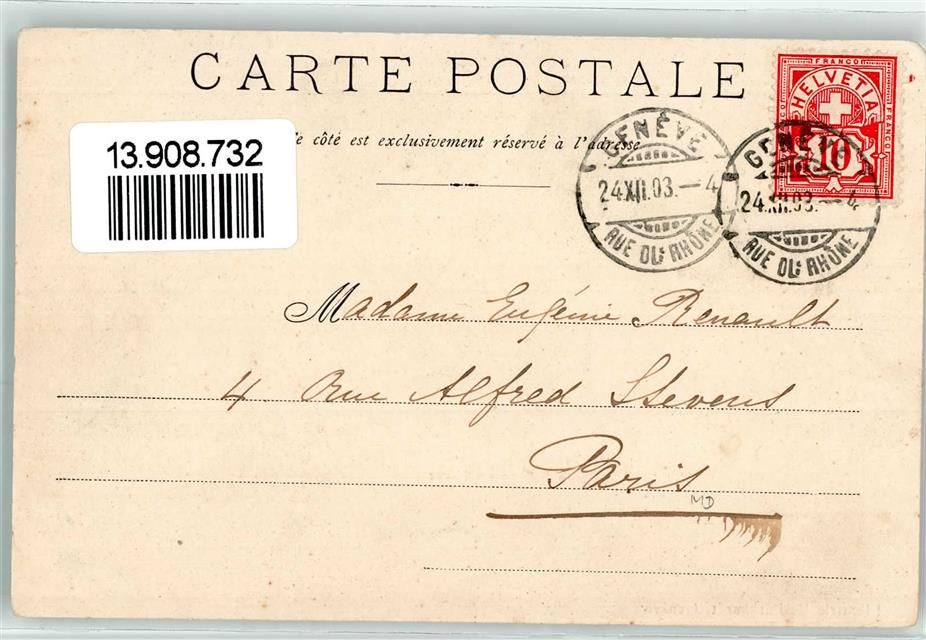 CARTE POSTALE
côté est exclusivement réservé à l'adresse
13.908.732
FRANCO
HELVETIA
FRANCO
10
GENÈVE
24.XII.03.–4
RUE DU RHÔNE
GENÈVE
24.XII.03.–4
RUE DU RHÔNE
Madame Eugénie Renault
4 Rue Alfred Stevens
Paris
MD